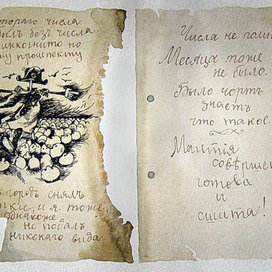 тораго числа
былъ безъ числа
инкогнито по
му проспекту
городъ снялъ
пки, и я тоже,
однакоже
не подалъ
никакого вида.
Числа не помн
Месяца тоже
не было.
Было чортъ
знаетъ
что такое
Мантія
совершен
готова
и
сшита!